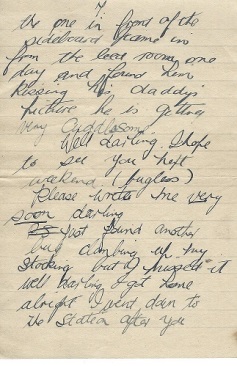 7
the one in front of the
sideboard I came in
from the bed room one
day and found him
kissing his daddy's
picture he is getting
very
Well darling I hope
to see you next
weekend (bugless)
Please write me very
soon darling
Just found another
bug climbing up my
stocking but I it
Well darling I got home
alright I went down to
the Station after you